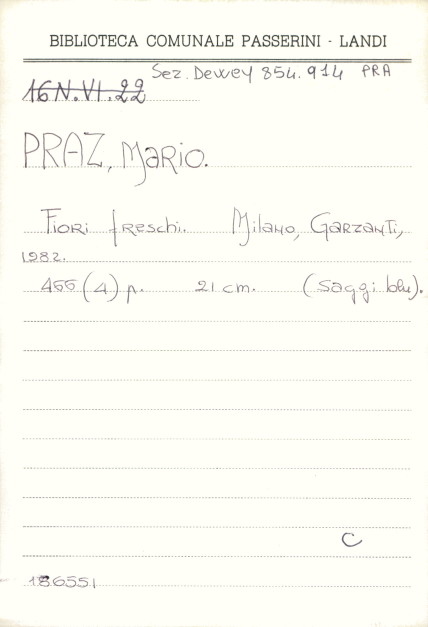 BIBLIOTECA COMUNALE PASSERINI - LANDI
Sez. Dewey 854.914 PRA
16 N.VI.22
PRAZ, Mario.
Fiori freschi. Milano, Garzanti,
1982.
466 (4) p. 21 cm. (Saggi blu).
C
186551